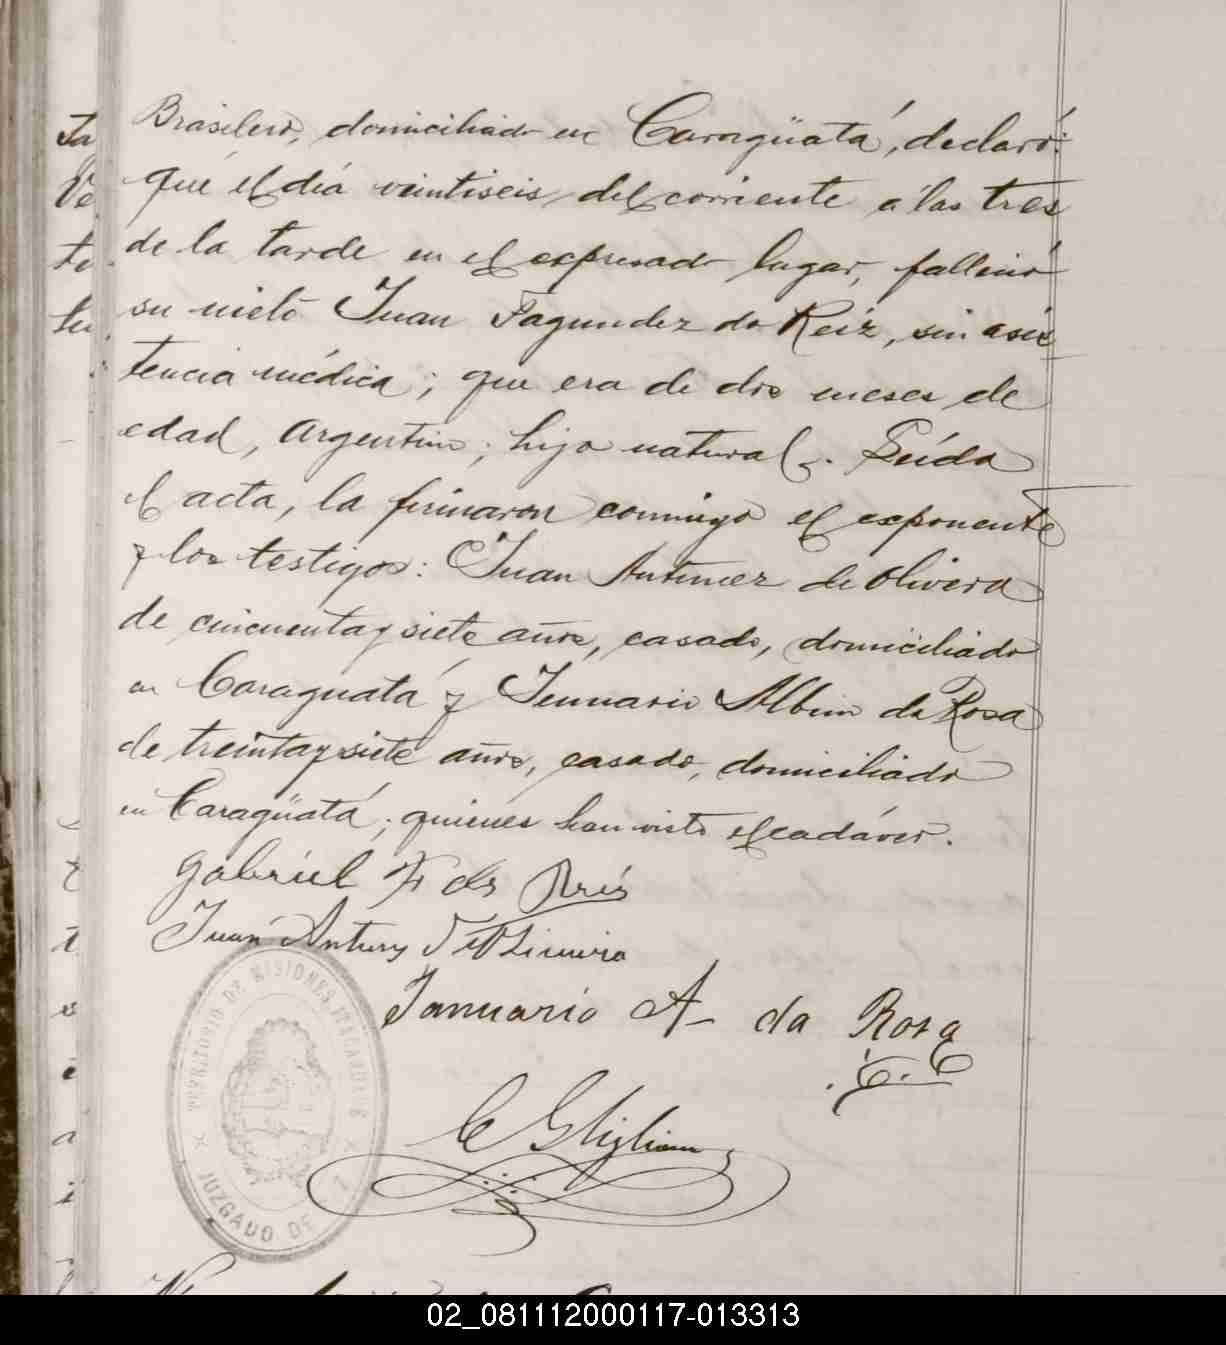 Brasilero, domiciliado en Caragüatá, declaró:
que el día veintiseis del corriente a las tres
de la tarde en el expresado lugar, falleció
su nieto Juan Fagundez da Reiz, sin asis
tencia médica; que era de dos meses de
edad, Argentino; hijo natural. Leída
el acta, la firmaron conmigo el exponente
y los testigos: Juan Antunez de Olivera
de cincuenta y siete años, casado, domiciliado
en Caraguatá y Jenuario Albino da Rosa
de treinta y siete años, casado, domiciliado
en Caragüatá; quienes han visto el cadáver.
Gabriel F de Reis
Juan Antuny
Januario A- da Rosa
TERRITORIO DE MISIONES
JUZGADO DE
02_081112000117-013313